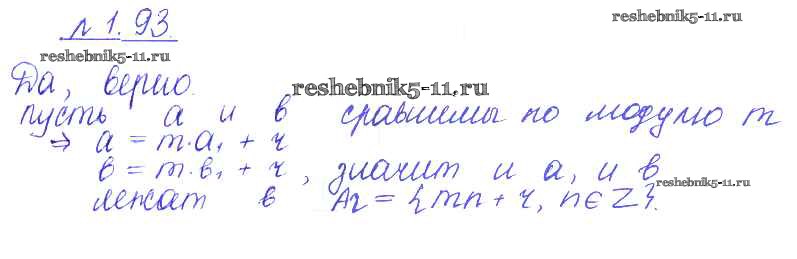 № 1.93.
reshebnik5-11.ru
reshebnik5-11.ru
Да, верно.
reshebnik5-11.ru
пусть а и в сравнимы по модулю m
⇒ a = m·a₁ + r
в = m·в₁ + r, значит и а, и в
reshebnik5-11.ru
лежат в Ar = {mn + r, n∈Z}.